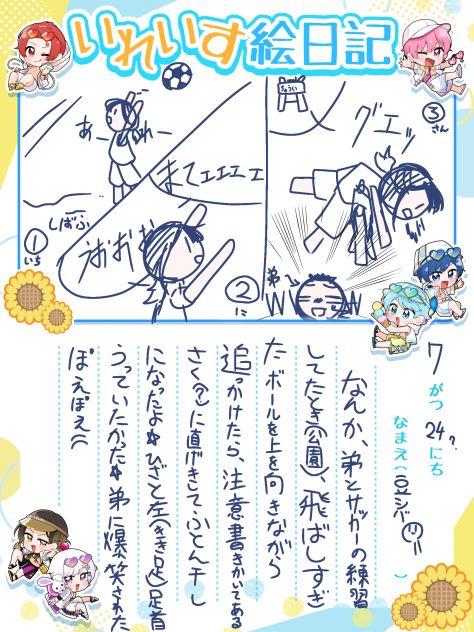 いれいす絵日記
あーれー
まてェェェェ
しばふ
①いち
おおおお
②に
ちゅうい
グエッ
③さん
弟
7がつ24?にち
なまえ(豆シバ)
なんか、弟とサッカーの練習
してたとき(公園)、飛ばしすぎ
たボールを上を向きながら
追っかけたら、注意書きかいてある
さく(?)に直げきしてふとん干し
になったよ☆ひざと左(きき足)足首
うっていたかった☆弟に爆笑された
ぽえぽえ(